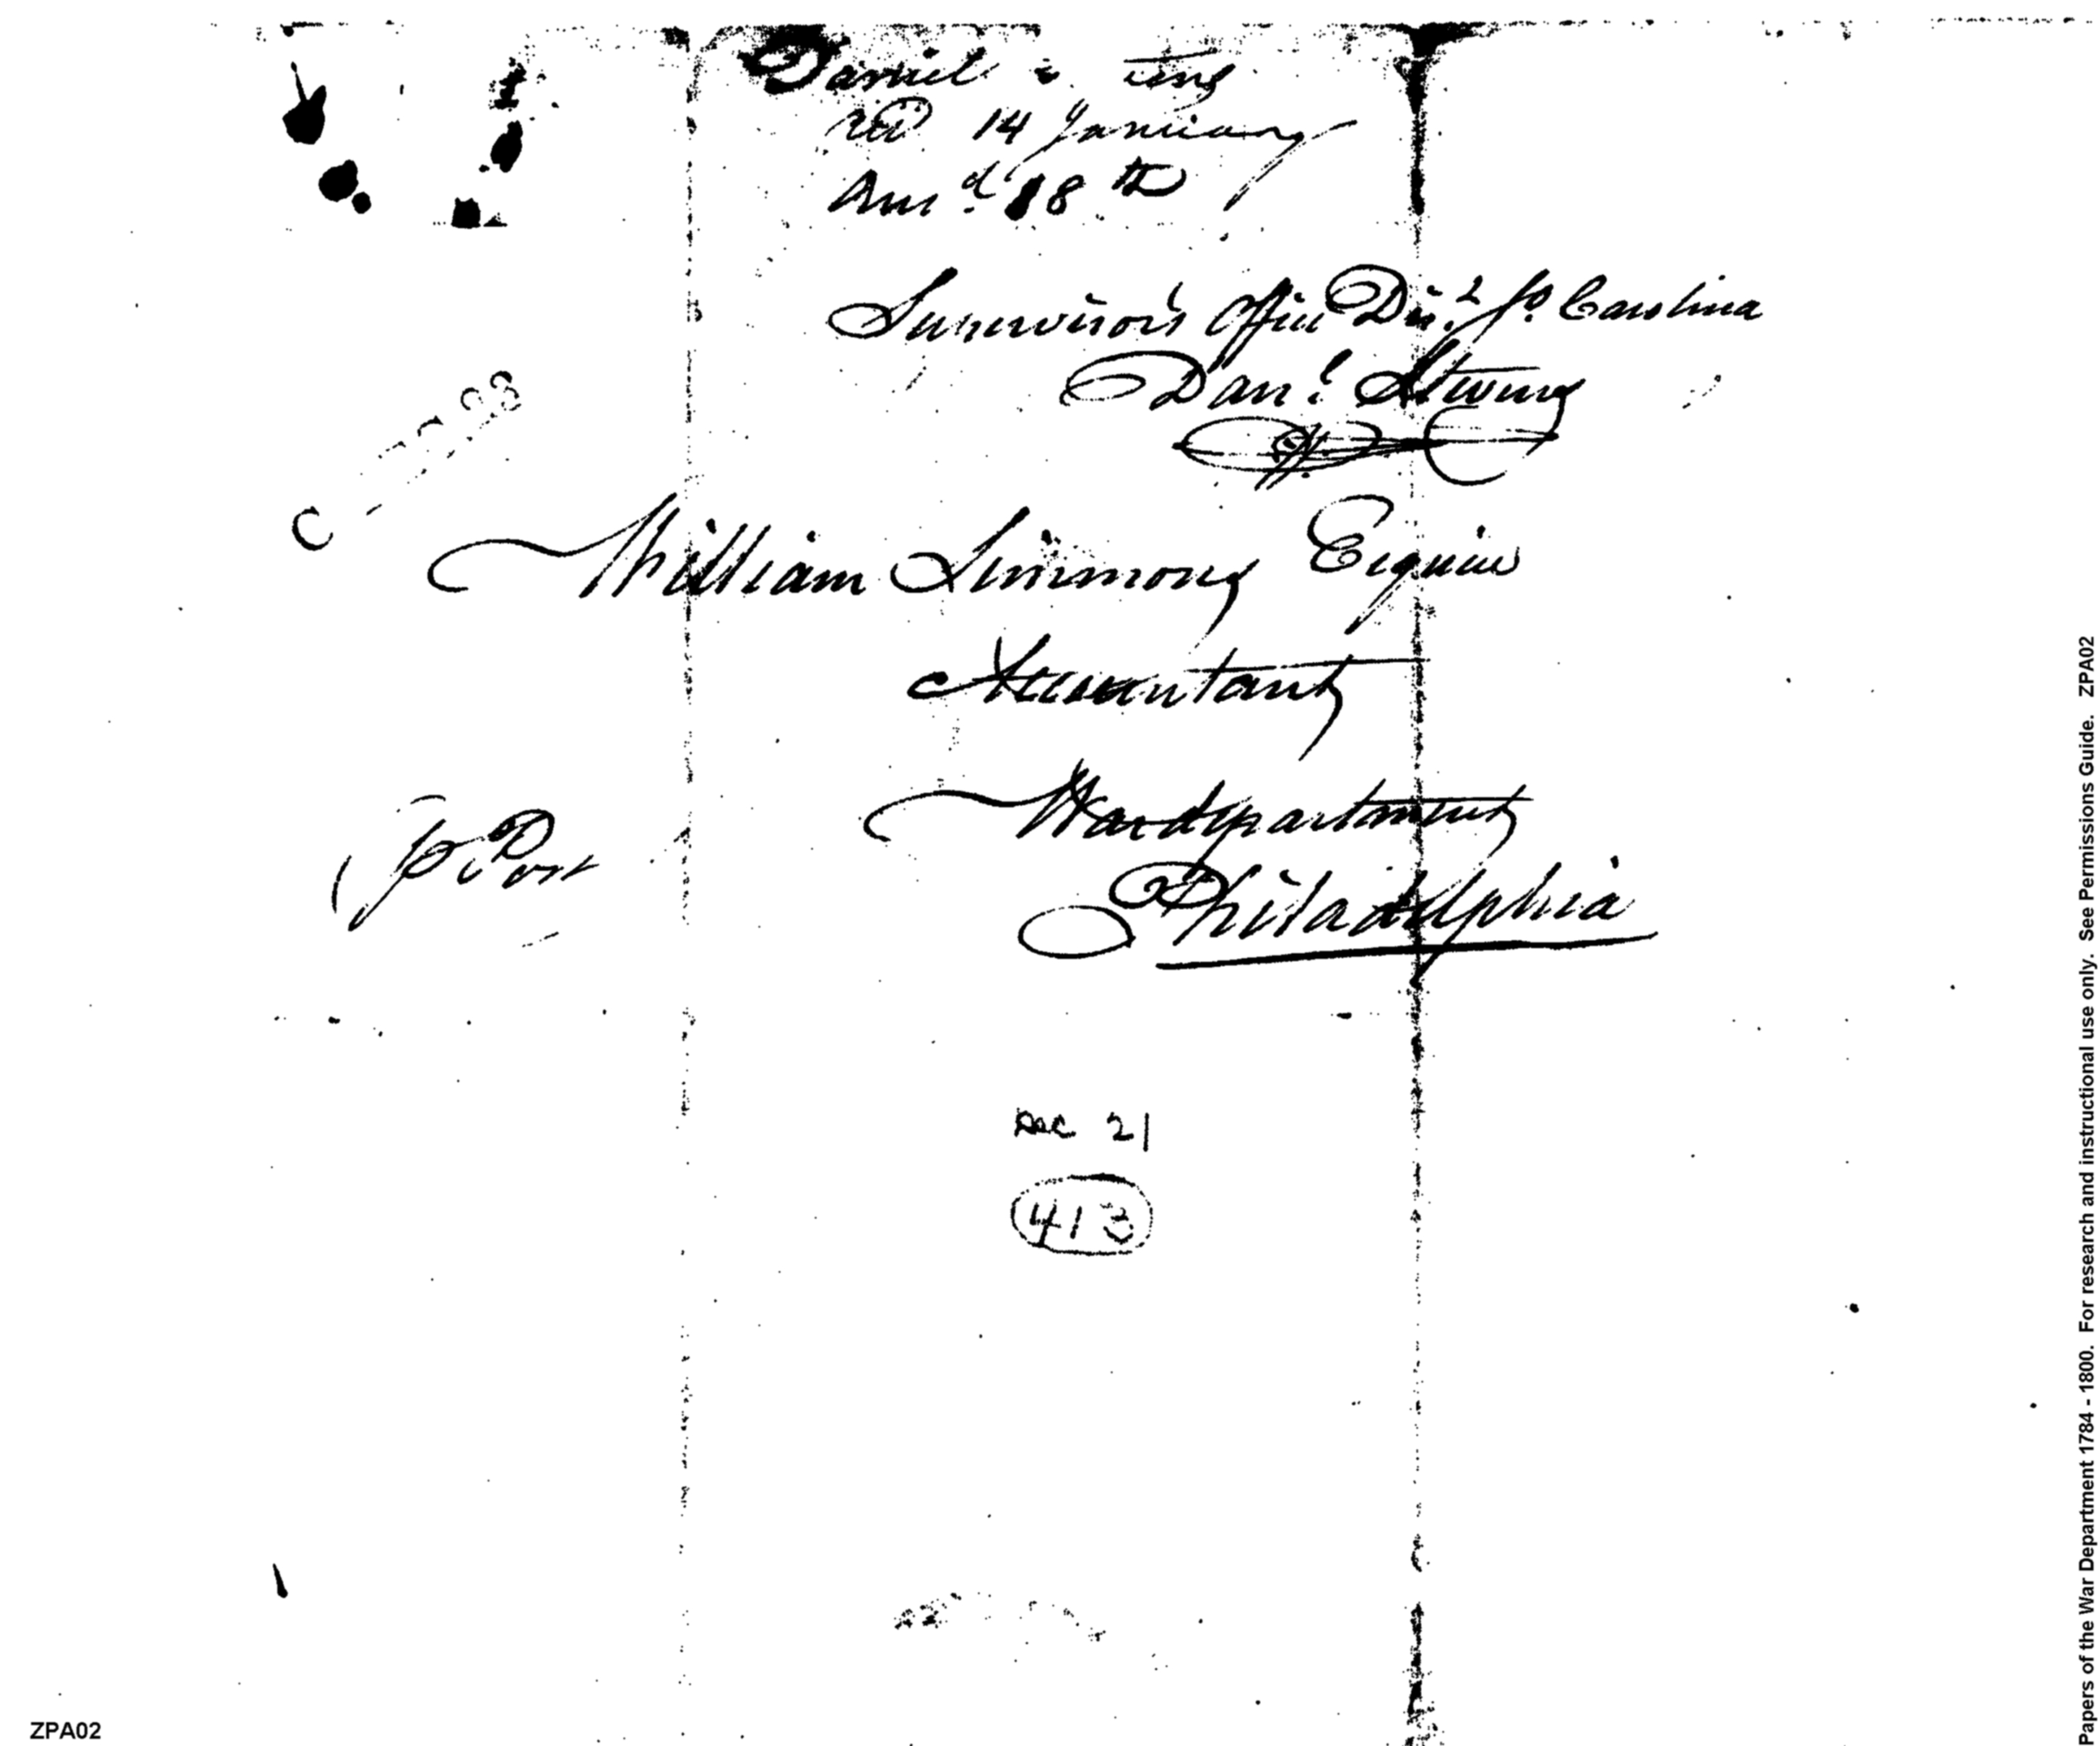 Daniel
recd 14 January
Ansd. 18th
Supervisor's Office Dist. So. Carolina
Danl. Stevens
William Simmons Esquire
Accountant
War department
Philadelphia
pr Post
Dec 21
413
ZPA02
Papers of the War Department 1784 - 1800. For research and instructional use only. See Permissions Guide. ZPA02